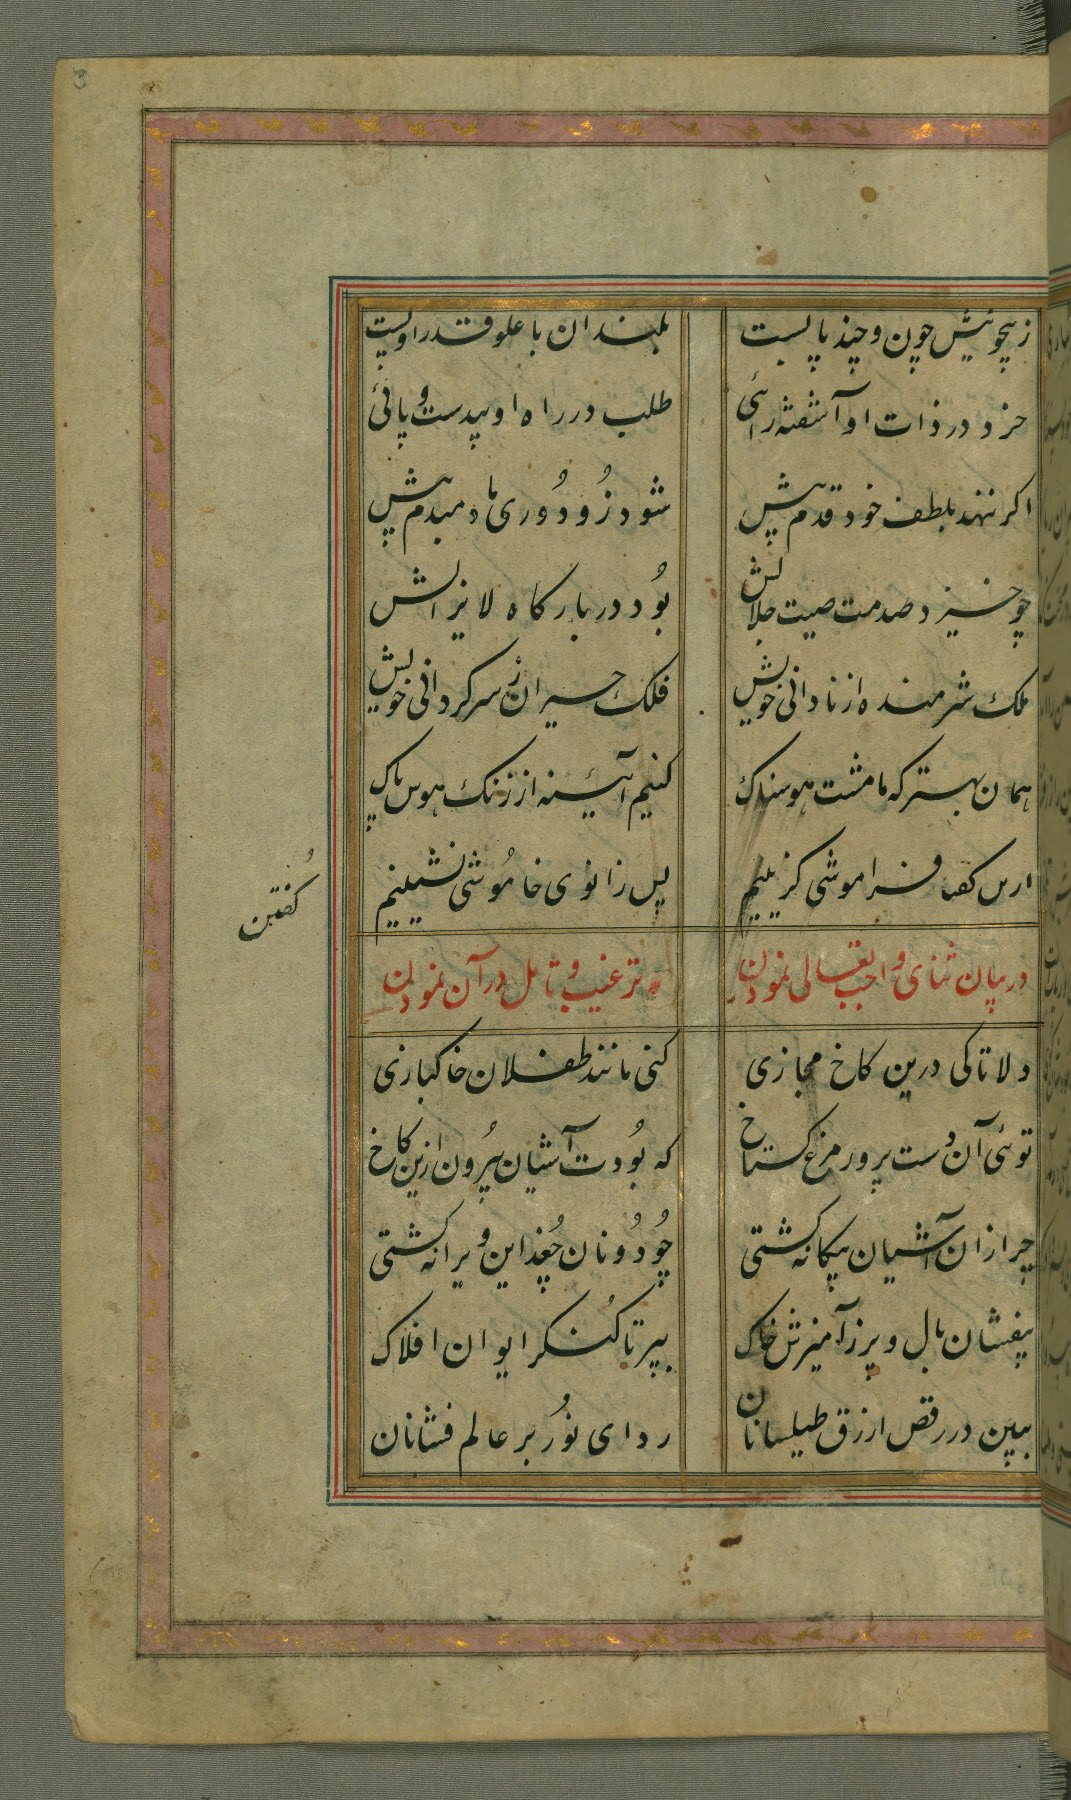 زبیچونیش چون و چند پا پست
بلندان با علو قدر او پست
خرد در ذات او آشفته رائی
طلب در راه او بیدست و پائی
اگر ننهد بلطف خود قدم پیش
شود زو دوری ما دمبدم پیش
چو خیزد صدمت صیت جلالش
بود در بارگاه لایزالش
ملک شرمنده از نادانی خویش
فلک حیران ز سرگردانی خویش
همان بهتر که ما مشت هوسناک
کنیم آئینه از زنگ هوس پاک
فراموشی گزینیم
پس زانوی خاموشی نشینیم
گفتن
در بیان ثنای واجب تعالی نمودن
و ترغیب و تامل در آن نمودن
دلا تا کی درین کاخ مجازی
کنی مانند طفلان خاکبازی
توئی آن دست پرور مرغ گستاخ
که بودت آشیان بیرون ازین کاخ
چرا زان آشیان بیگانه گشتی
چو دونان جغد این ویرانه گشتی
بیفشان بال و پر ز آمیزش خاک
بپر تا کنگر ایوان افلاک
ببین در رقص ازرق طیلسانان
ردای نور بر عالم فشانان